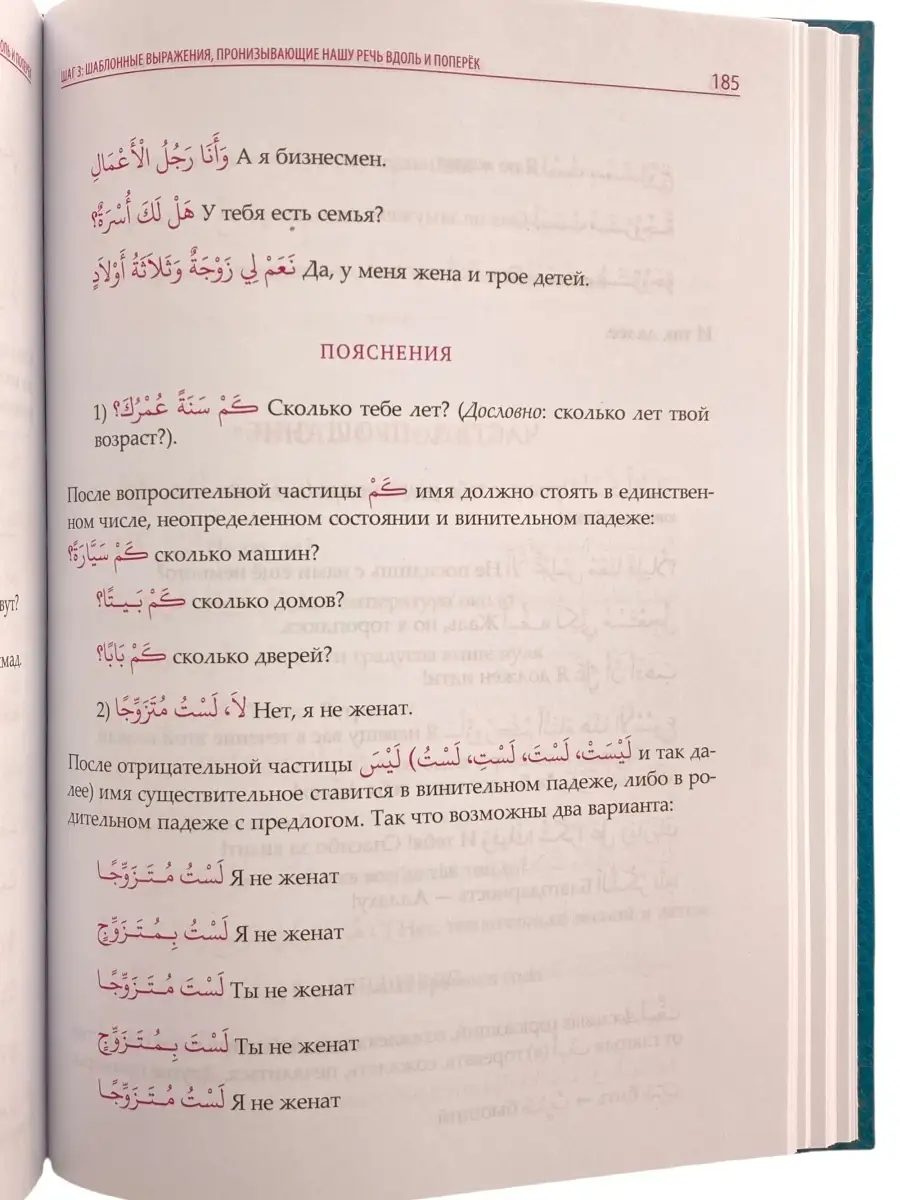 ШАГ 3: ШАБЛОННЫЕ ВЫРАЖЕНИЯ, ПРОНИЗЫВАЮЩИЕ НАШУ РЕЧЬ ВДОЛЬ И ПОПЕРЁК
185
وَأَنَا رَجُلُ الْأَعْمَالِ А я бизнесмен.
هَلْ لَكَ أُسْرَةٌ؟ У тебя есть семья?
نَعَمْ لِي زَوْجَةٌ وَثَلَاثَةُ أَوْلاَدٍ Да, у меня жена и трое детей.
ПОЯСНЕНИЯ
1) كَمْ سَنَةً عُمْرُكَ؟ Сколько тебе лет? (Дословно: сколько лет твой
возраст?).
После вопросительной частицы كَمْ имя должно стоять в единствен-
ном числе, неопределенном состоянии и винительном падеже:
كَمْ سَيَّارَةً؟ сколько машин?
كَمْ بَيْتًا؟ сколько домов?
كَمْ بَابًا؟ сколько дверей?
2) لاَ، لَسْتُ مُتَزَوِّجًا Нет, я не женат.
После отрицательной частицы لَيْسَ (لَسْتُ، لَسْتِ، لَسْتَ، لَيْسَتْ и так да-
лее) имя существительное ставится в винительном падеже, либо в ро-
дительном падеже с предлогом. Так что возможны два варианта:
لَسْتُ مُتَزَوِّجًا Я не женат
لَسْتُ بِمُتَزَوِّجٍ Я не женат
لَسْتَ مُتَزَوِّجًا Ты не женат
لَسْتَ بِمُتَزَوِّجٍ Ты не женат
لَسْتُ مُتَزَوِّجًا Я не женат
вут?